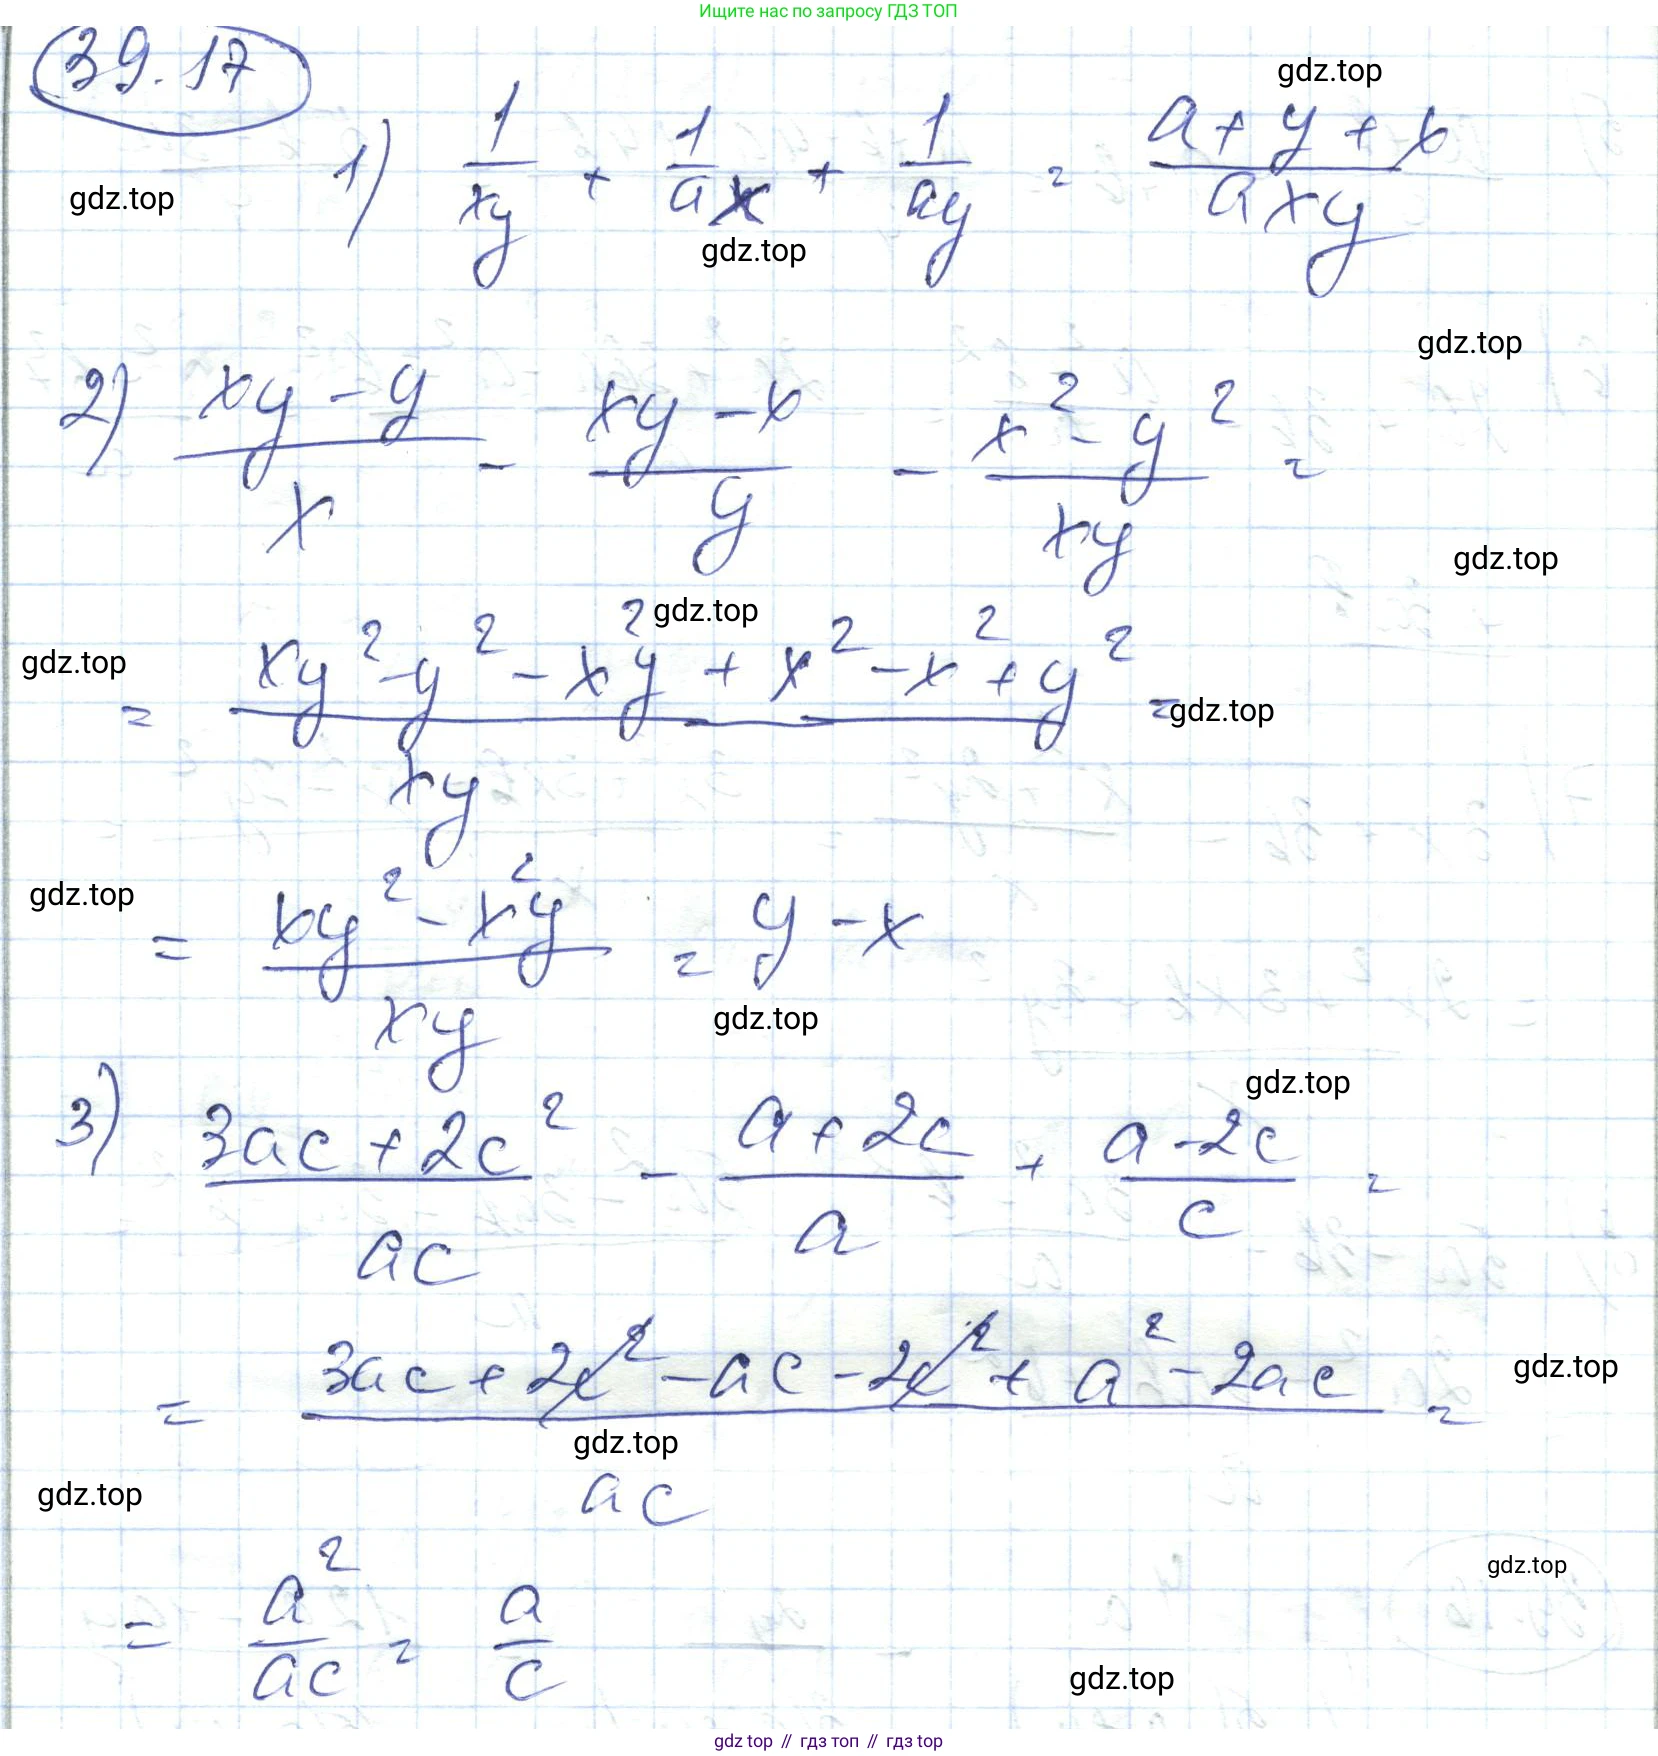 Ищите нас по запросу ГДЗ ТОП
39.17
gdz.top
1) 1/xy + 1/ax + 1/ay = (a + y + x)/axy
gdz.top
gdz.top
gdz.top
2) (xy - y)/x - (xy - x)/y - (x² - y²)/xy =
gdz.top
gdz.top
gdz.top
= (xy² - y² - x²y + x² - x² + y²)/xy =
gdz.top
gdz.top
= (xy² - x²y)/xy = y - x
gdz.top
gdz.top
3) (3ac + 2c²)/ac - (a + 2c)/a + (a - 2c)/c =
gdz.top
= (3ac + 2c² - ac - 2c² + a² - 2ac)/ac =
gdz.top
gdz.top
gdz.top
= a²/ac = a/c
gdz.top
gdz top // гдз топ // гдз top